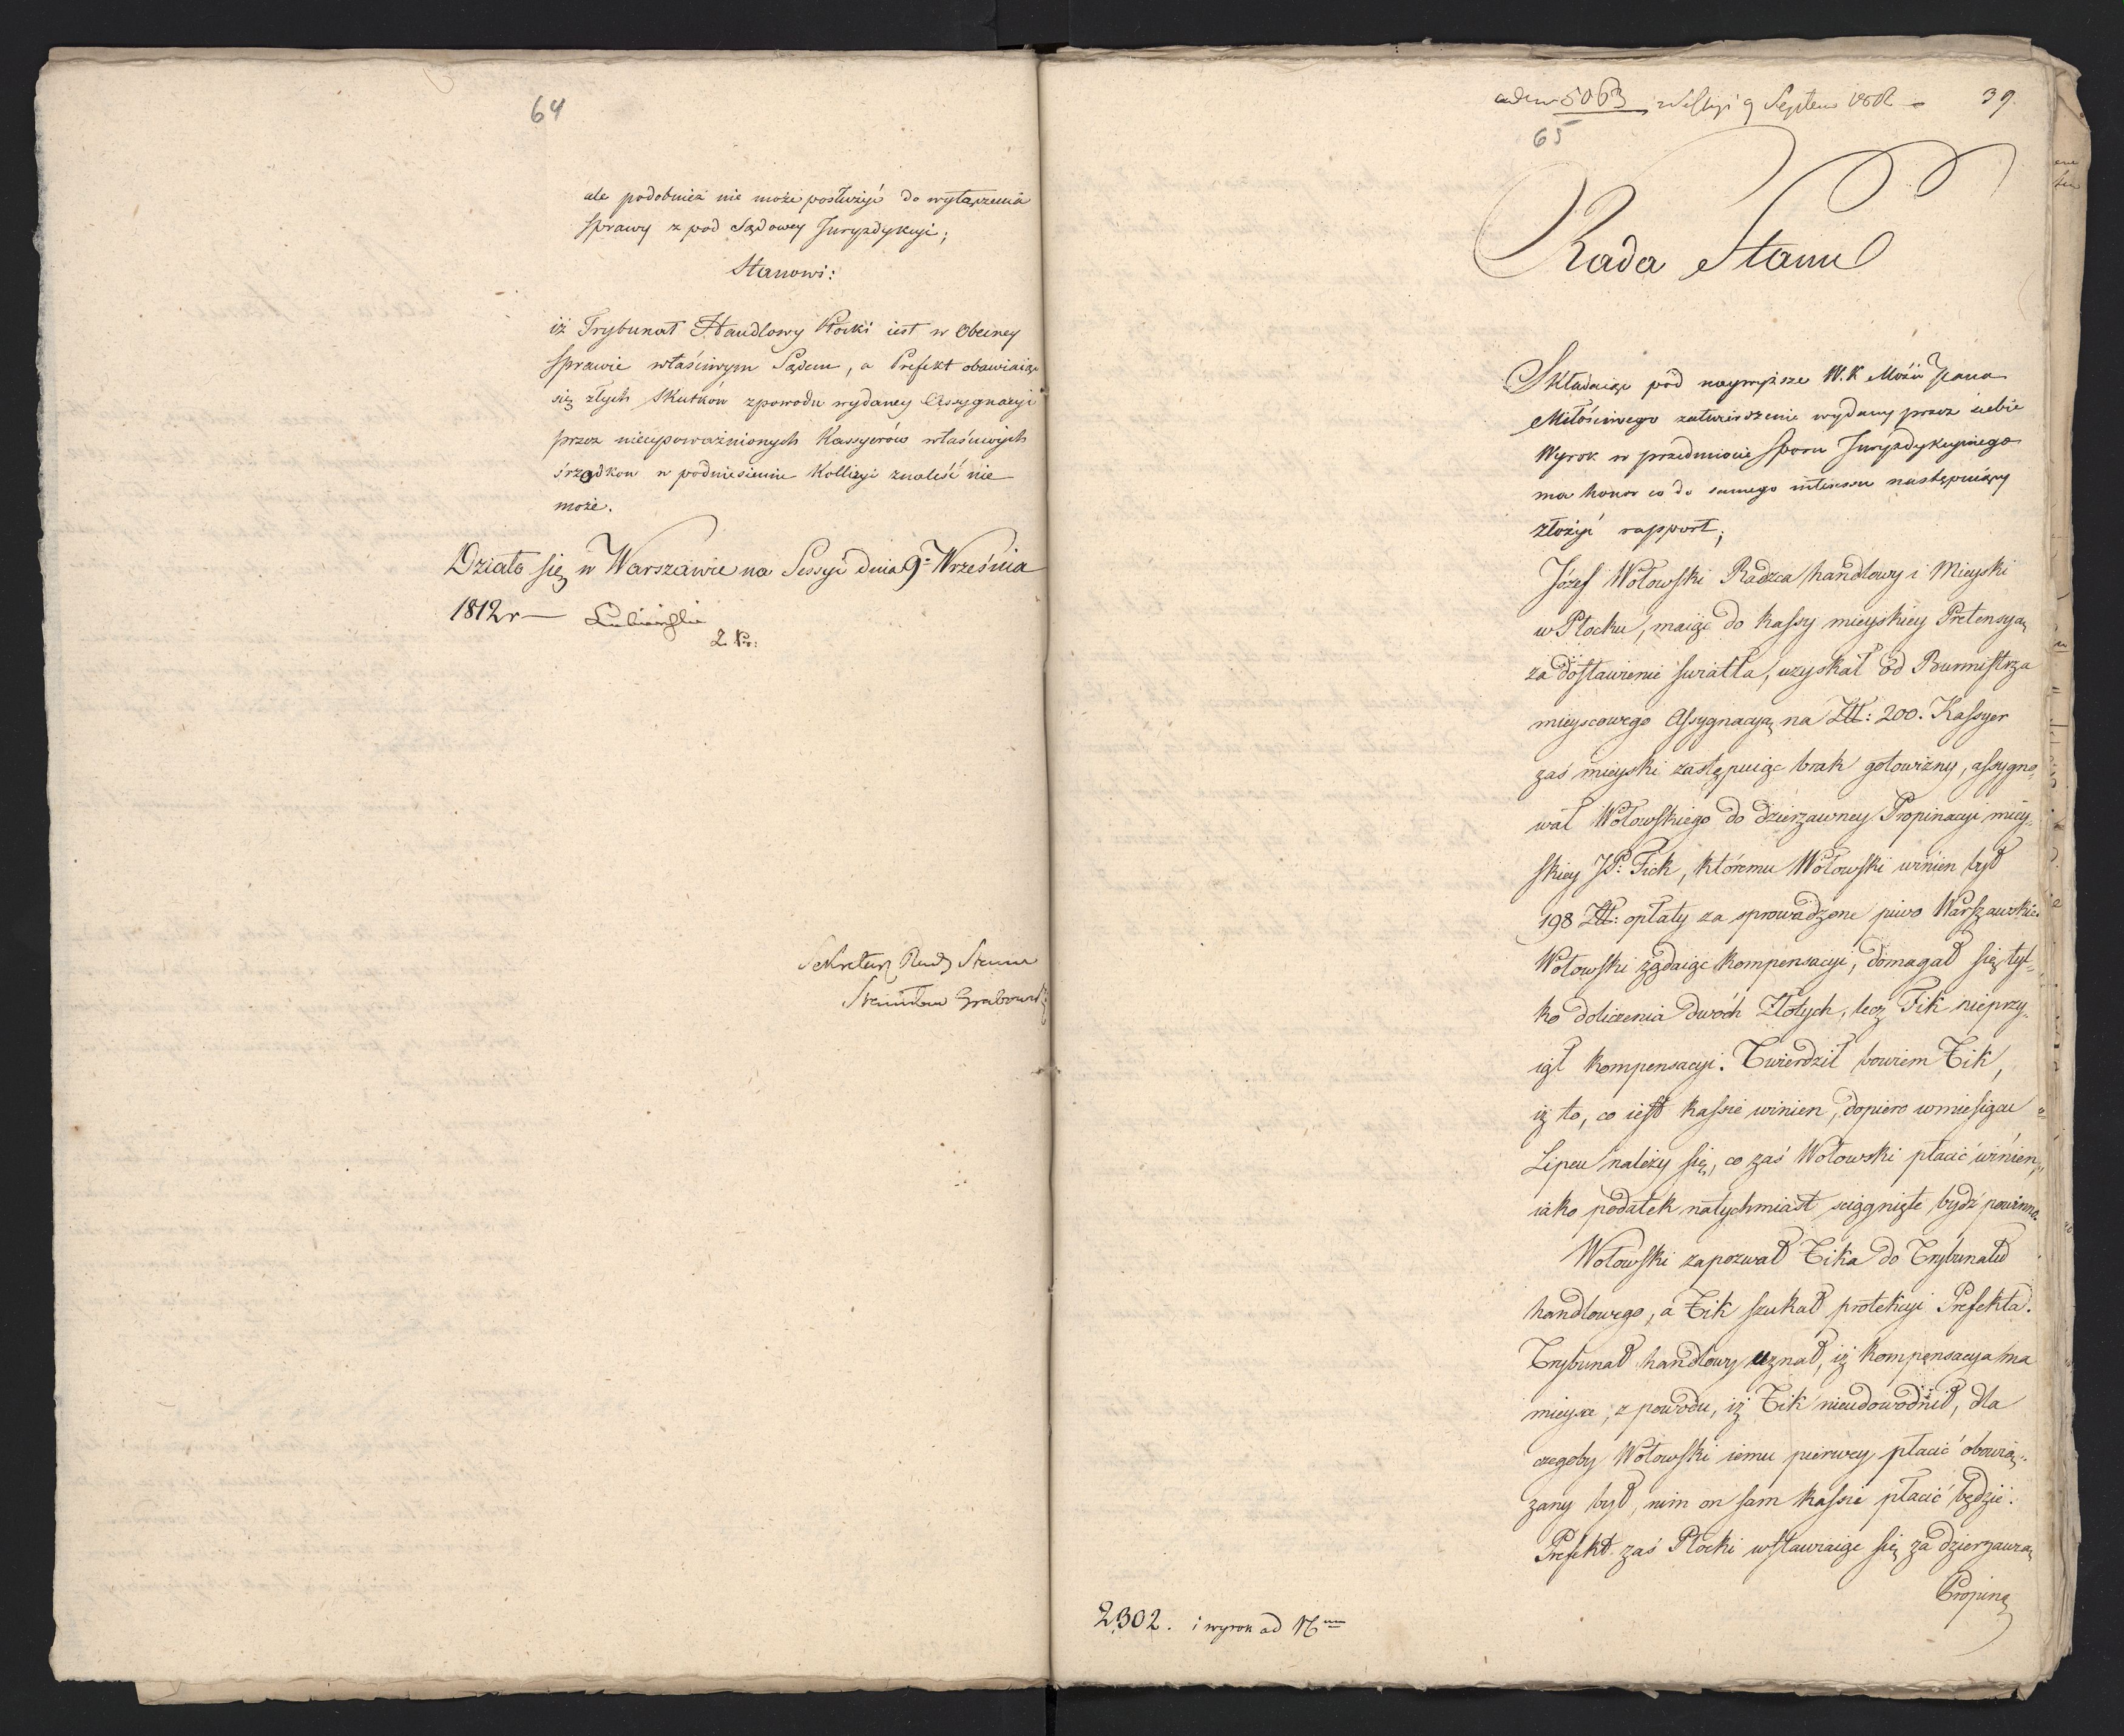 64
ale podobnież nie może posłużyć do wyłączenia
sprawy z pod Sądowey Juryzdykcyi;
Stanowi:
iż Trybunał Handlowy Płocki iest w obecney
sprawie właściwym Sądem, a Prefekt obawiaiąc
się złych skutków z powodu wydaney Assygnacyi
przez nieupoważnionych Kassyerów właściwych
śrzodkow w podniesieniu Kollizyi znaleść nie
może.
Działo się w Warszawie na Sessyi dnia 9. Września
1812 r — Lubieński
Sekretarz Rady Stanu
Stanisław Grabowski
5063 9 Septem 39.
65
Rada Stanu
Składaiąc pod naywyższe W. K. Mości Pana
Miłościwego zatwierdzenie wydany przez siebie
Wyrok w przedmiocie sporu Juryzdykcyinego
ma honor co do samego interessu następuiący
złożyć rapport;
Józef Wołowski Radzca handlowy i Mieyski
w Płocku, maiąc do kassy mieyskiey Pretensyą
za dostawienie swiatła, uzyskał od Burmistrza
mieyscowego Assygnacyą na Złł: 200. Kassyer
zaś mieyski zastępuiąc brak gotowizny, assygno„
wał Wołowskiego do dzierzawney Propinacyi miey„
skiey JP: Fick, któremu Wołowski winien był
198 Złł: opłaty za sprowadzone piwo Warszawskie.
Wołowski żądaiąc kompensacyi, domagał się tyl„
ko doliczenia dwóch Złotych, lecz Fik nieprzy„
iął kompensacyi. Twierdził bowiem Fik,
iż to, co iest kassie winien, dopiero w miesiącu
Lipcu należy się, co zaś Wołowski płacić winien,
iako podatek natychmiast sciągnięte bydź powinno.
Wołowski zapozwał Fika do Trybunału
handlowego, a Fik szukał protekcyi Prefekta.
Trybunał handlowy uznał, iż kompensacya ma
mieysce, z powodu, iż Fik nieudowodnił, dla
czegoby Wołowski iemu pierwey płacić obowią„
zany był, nim on sam kassie płacić będzie.
Prefekt zaś Płocki wstawiaiąc się za dzierzawcą
Propina
2302. i wyrok ad N